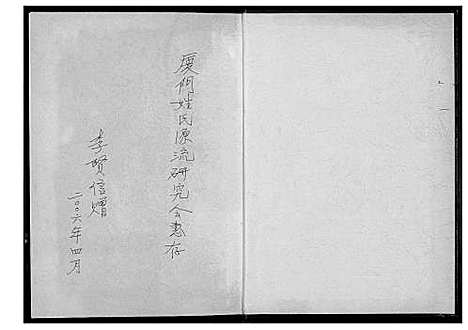 厦门姓氏源流研究会惠存
李贤信赠
二00六年四月